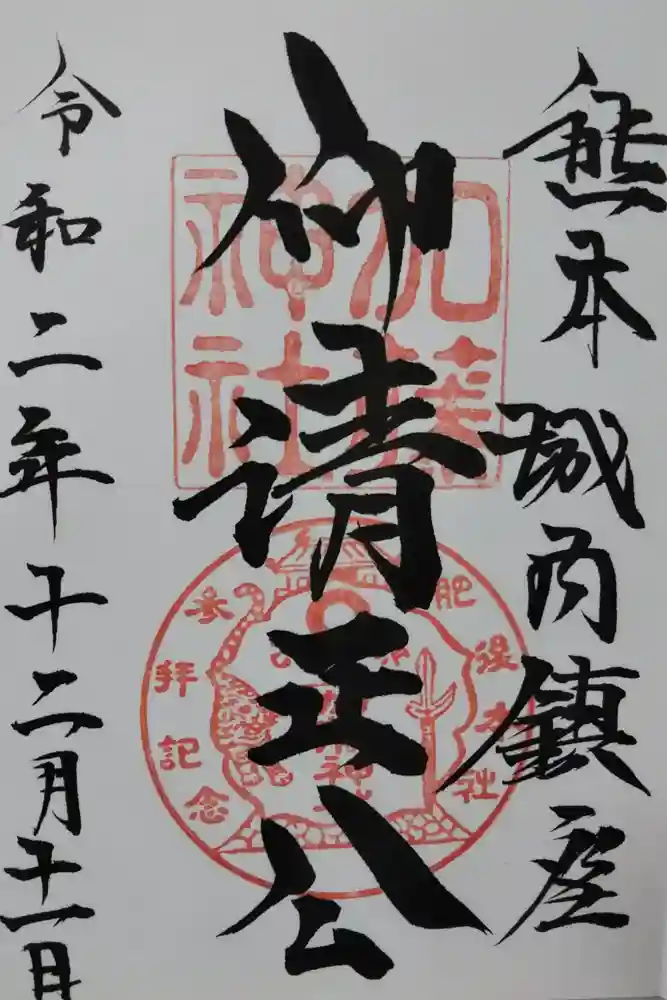 熊本城内鎮座
仰清正公
令和二年十二月十一日
加藤
神社
肥後本社
参拝記念